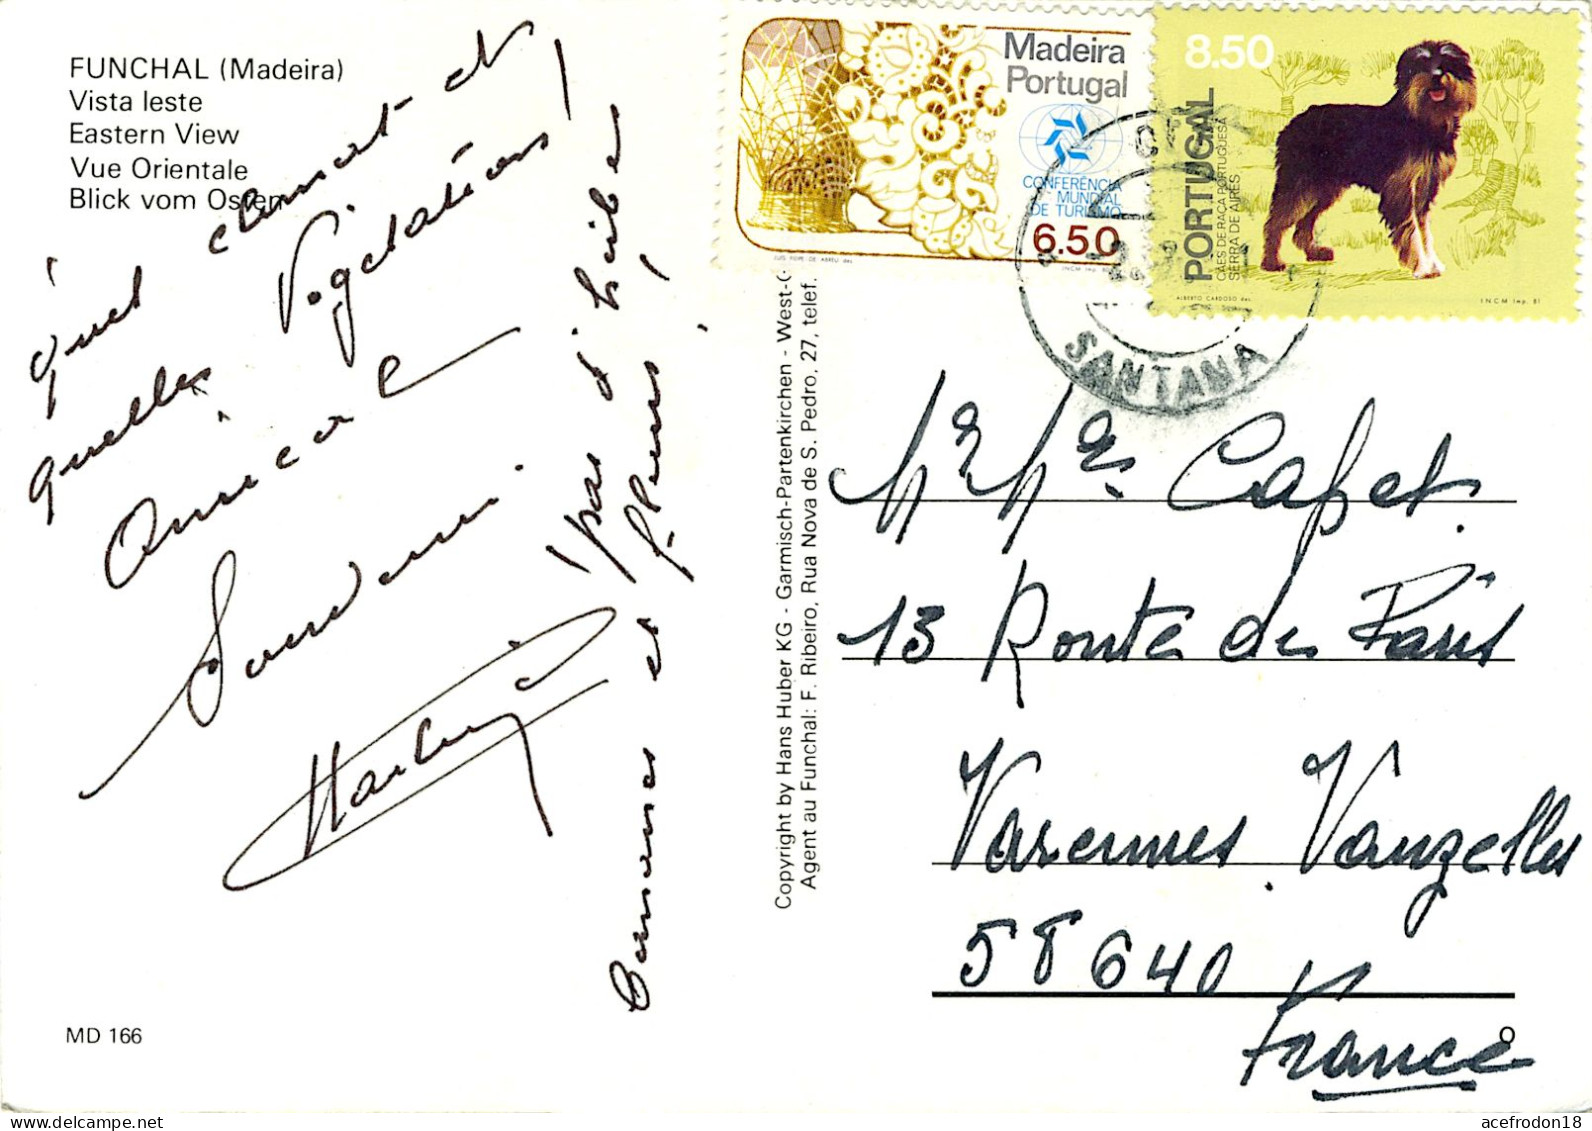 FUNCHAL (Madeira)
Vista leste
Eastern View
Vue Orientale
Blick vom Osten
quel climat et
quelles végétations!
Amical
Souvenir
pas d'hiver!
Bananes et fleurs!
MD 166
Copyright by Hans Huber KG - Garmisch-Partenkirchen - West-G
Agent au Funchal: F. Ribeiro, Rua Nova de S. Pedro, 27, telef.
Madeira
Portugal
CONFERÊNCIA
MUNDIAL
DE TURISMO
6.50
LUIS FILIPE DE ABREU des.
INCM Imp. 80
8.50
PORTUGAL
CÃES DE RAÇA PORTUGUESA
SERRA DE AIRES
ALBERTO CARDOSO des.
INCM Imp. 81
CTT
SANTANA
Mr Mme Capet.
13 Route de Paris
Varennes Vauzelles
58640
France
acefrodon18